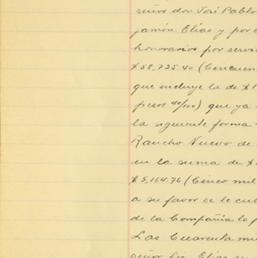 señor don José Pablo
jamín Elías y por c
honorarios por servi
$58,725.40 (Cincuen
que incluye la de $1
pesos 40/100) que ya
la siguiente forma
Rancho Nuevo de
en la suma de $
$5,164.76 (Cinco mil
a su favor se le cu
de la Compañía la p
Los Cuarenta mi
señor Lic. Elías en